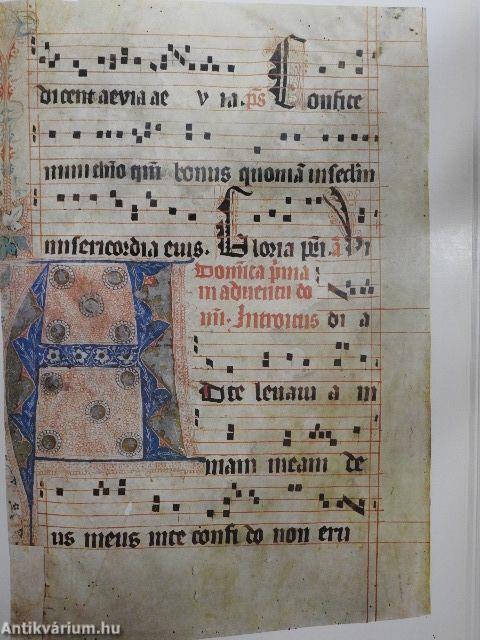 dicent aevia ae v ia. ps Confite
mini dño qm bonus quoniā in seclm
misericordia eius. Gloria pri. ā Vi
Domica pma
in adventu do
mi. Introitus di a
A Dte levavi a ni
mam meam de
us meus in te confi do non eru
Antikvárium.hu